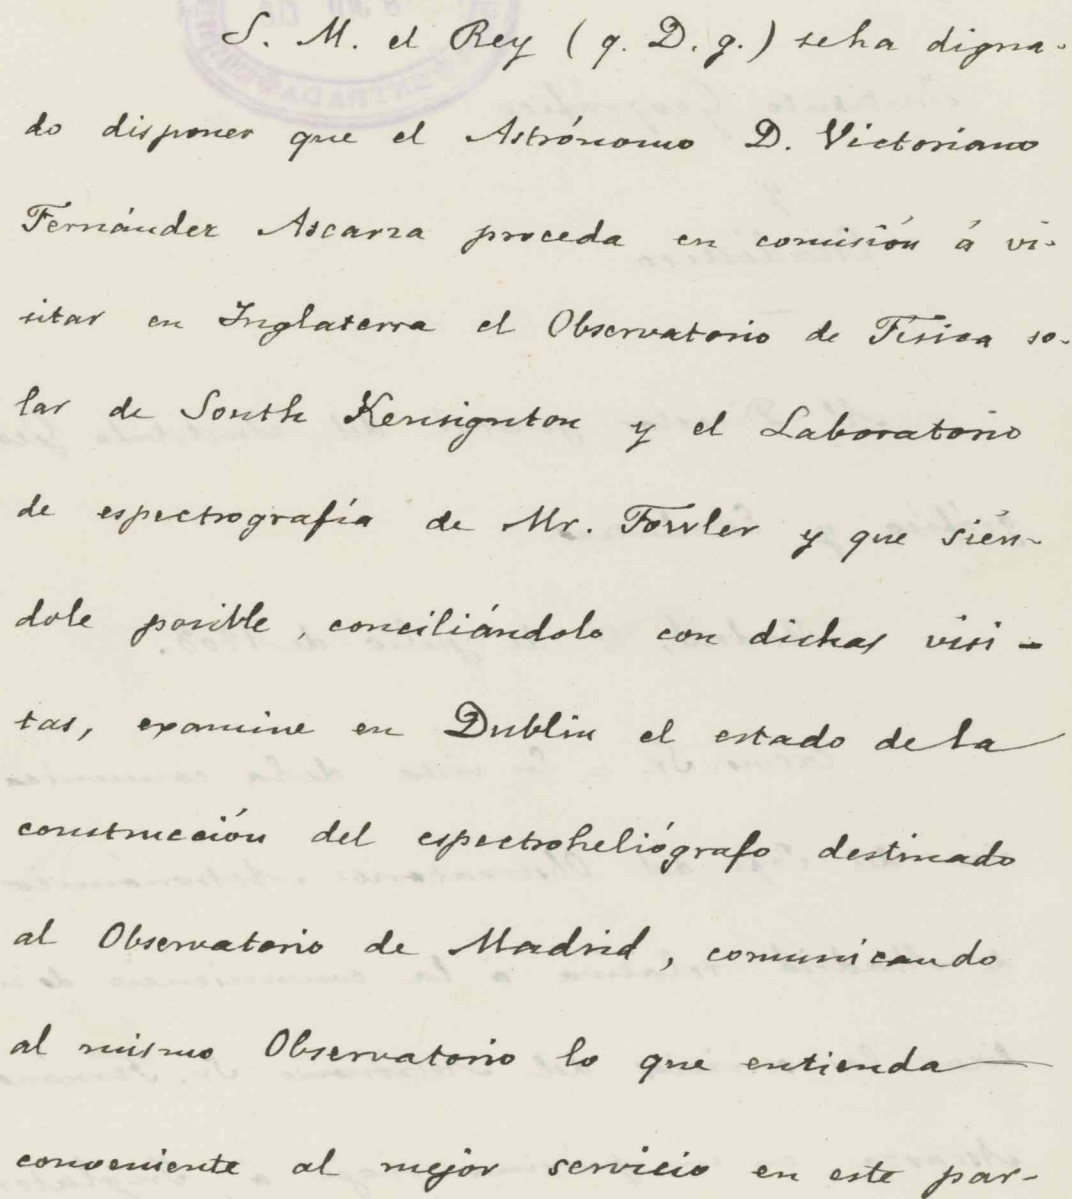 S. M. el Rey (q. D. g.) se ha digna-
do disponer que el Astrónomo D. Victoriano
Fernández Ascarza proceda en comisión á vi-
sitar en Inglaterra el Observatorio de Física so-
lar de South Kensignton y el Laboratorio
de espectrografía de Mr. Fowler y que sién-
dole posible, conciliándolo con dichas visi-
tas, examine en Dublin el estado de la
construcción del espectroheliógrafo destinado
al Observatorio de Madrid, comunicando
al mismo Observatorio lo que entienda
conveniente al mejor servicio en este par-